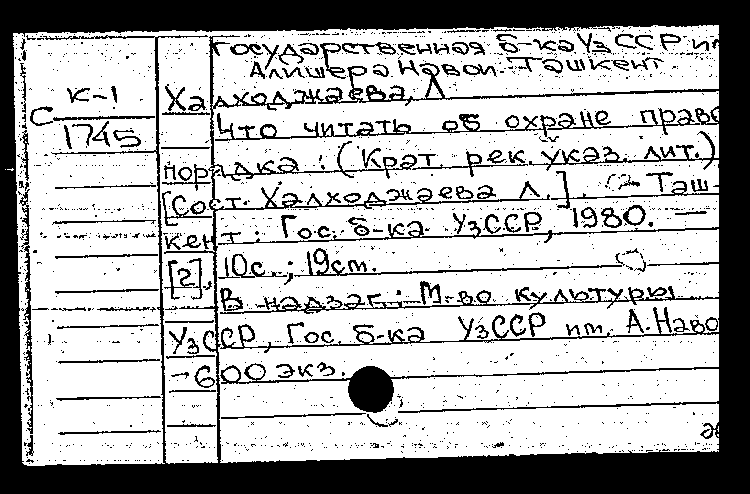 Государственная б-ка УзССР им
Алишера Навои. Ташкент.
К-1
С
1745
Халходжаева, Л
Что читать об охране право
порядка : (Крат. рек. указ. лит.)
[Сост. Халходжаева Л.]. — Таш-
кент : Гос. б-ка УзССР, 1980. —
[2], 10с. ; 19см.
В надзаг.: М-во культуры
УзССР, Гос. б-ка УзССР им. А. Наво
-600 экз.